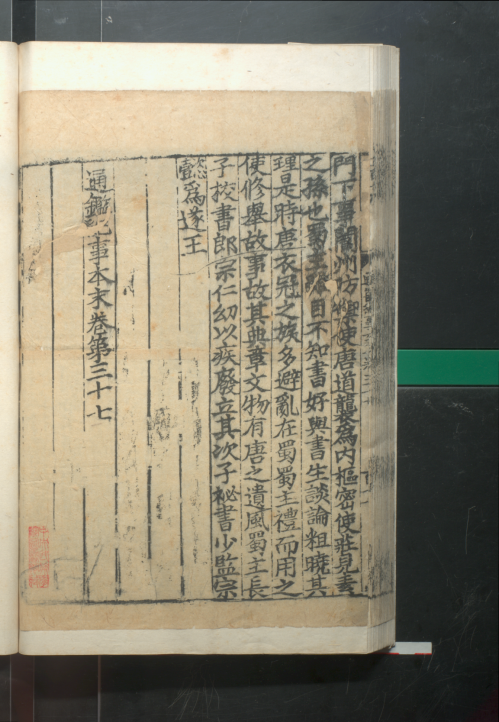 門下事閬州防禦使唐道襲為內樞密使莊見素
之孫也蜀主雖目不知書好與書生談論粗曉其
理是時唐衣冠之族多避亂在蜀蜀主禮而用之
使修舉故事故其典章文物有唐之遺風蜀主長
子挍書郎宗仁幼以疾廢立其次子祕書少監宗
懿為遂王
通鑑紀事本末卷第三十七